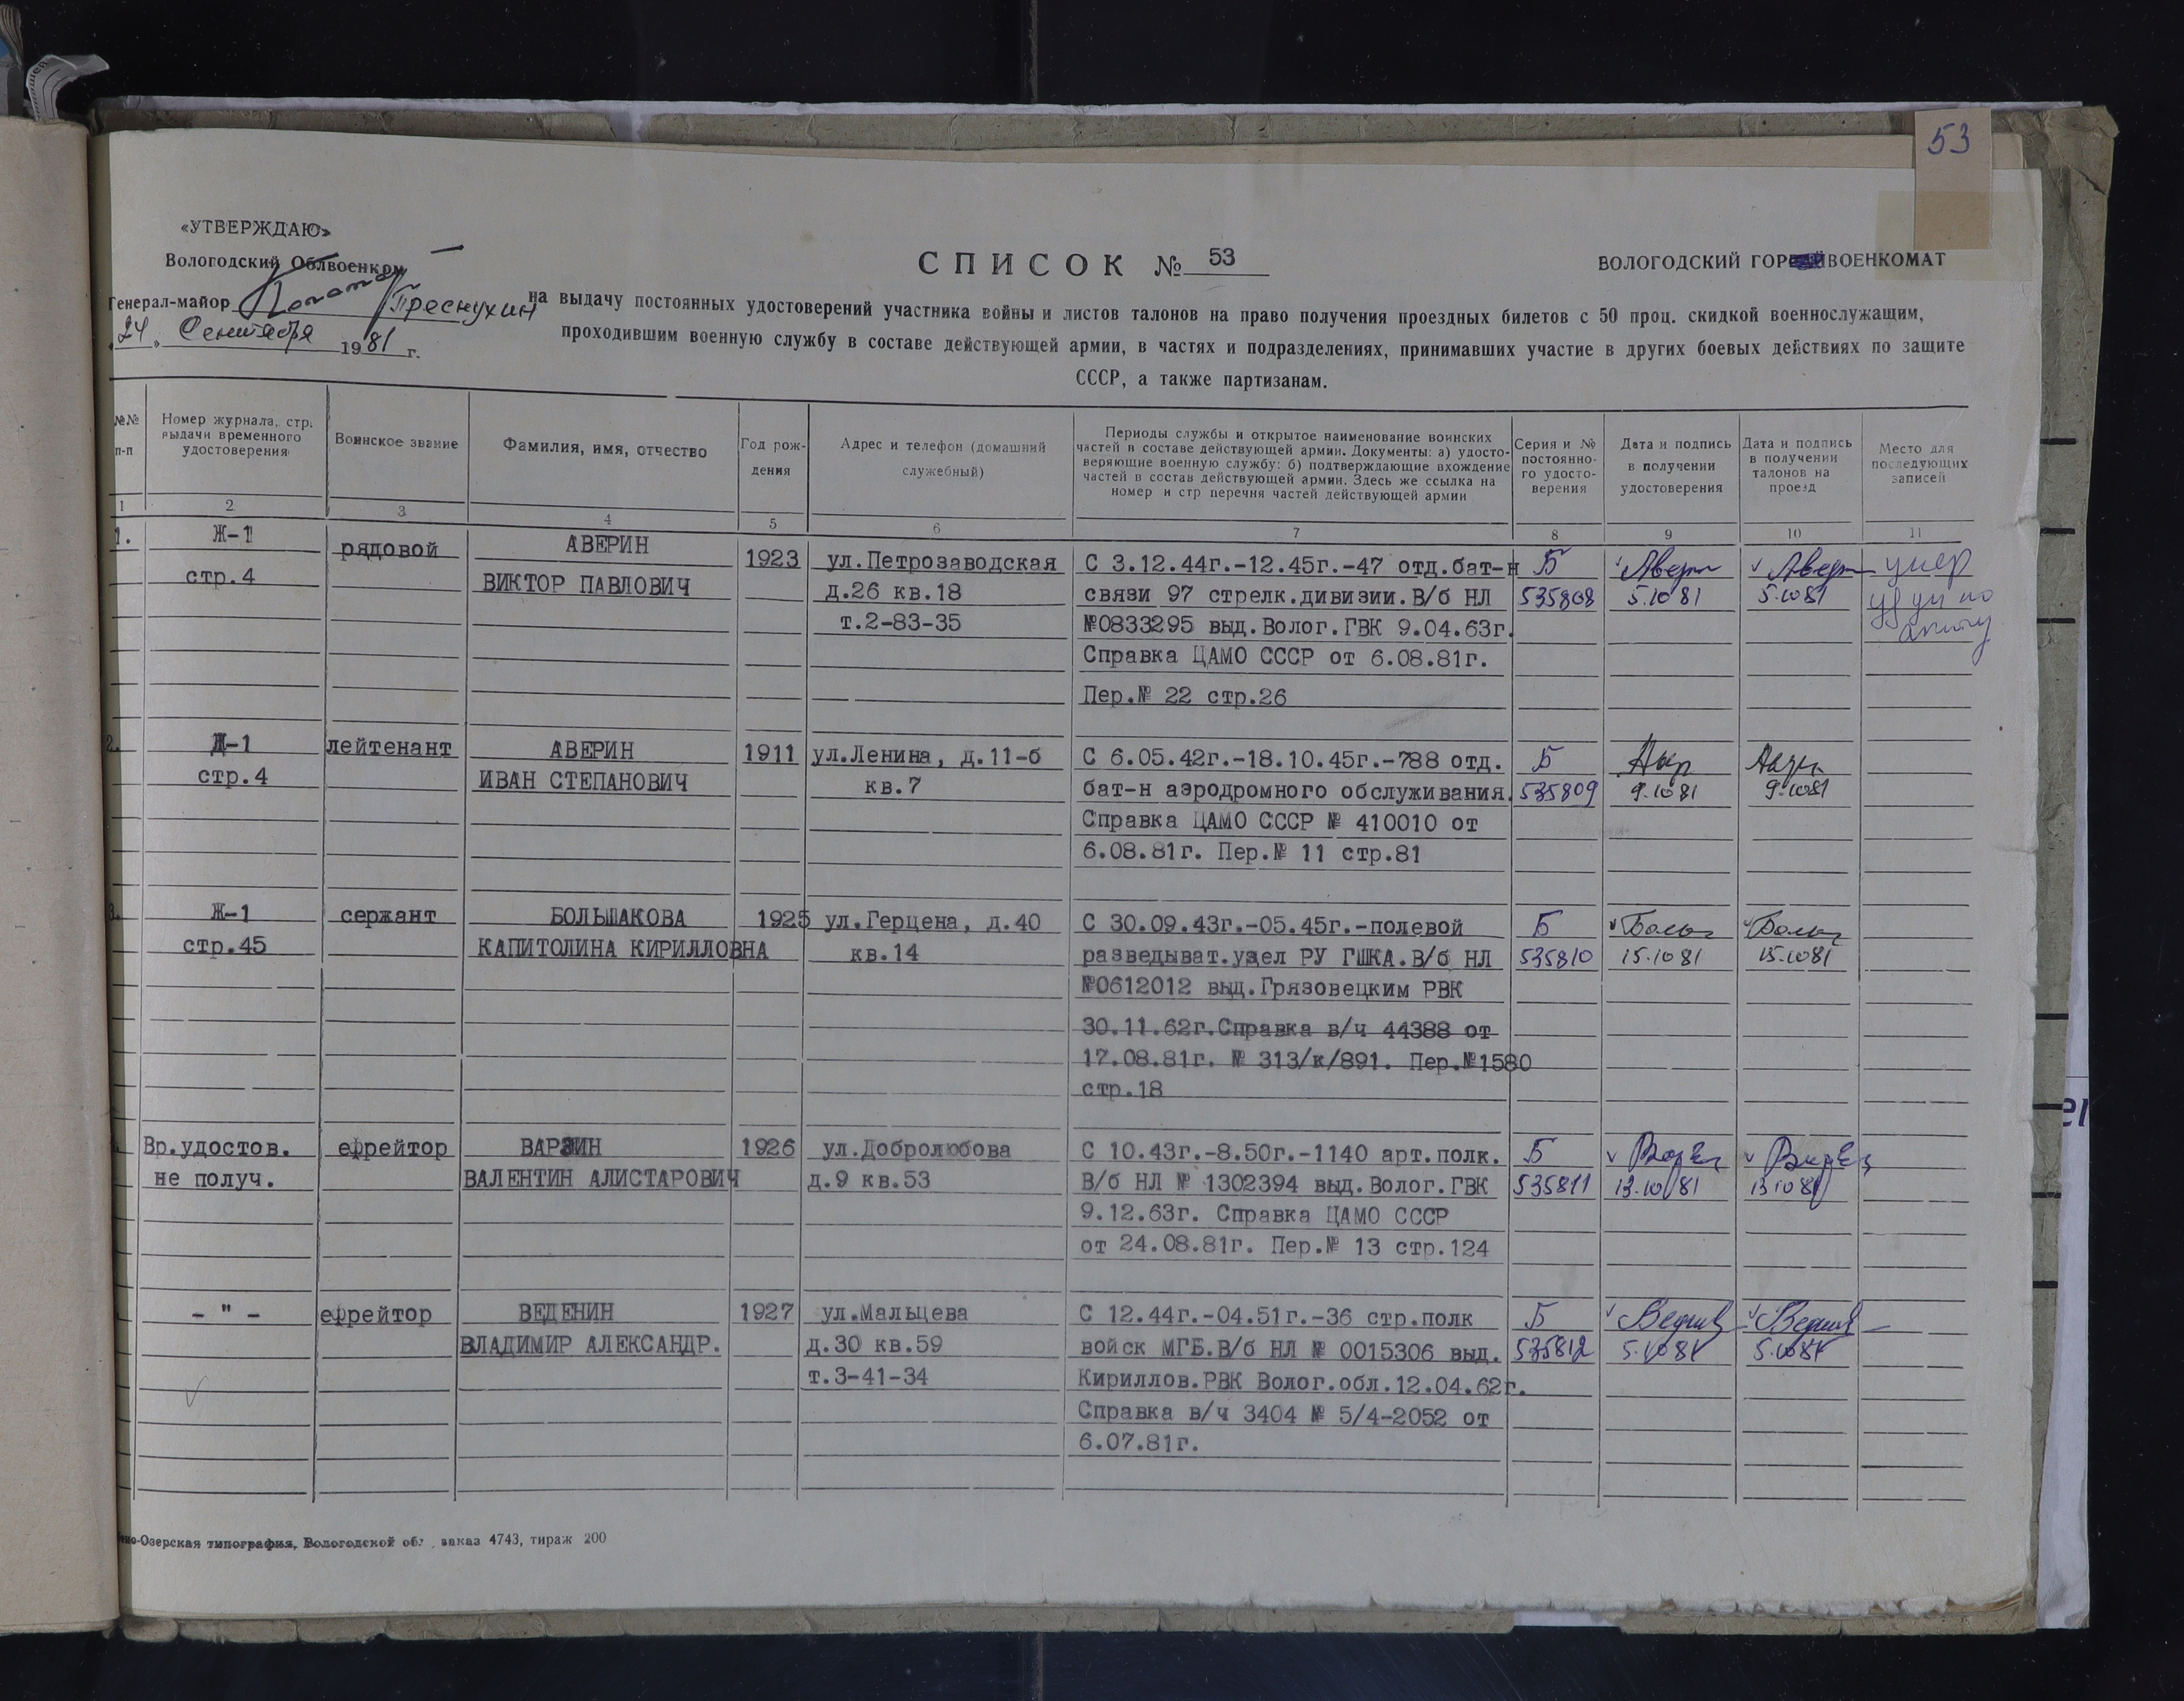 53
«УТВЕРЖДАЮ»
Вологодский Облвоенком
СПИСОК № 53
ВОЛОГОДСКИЙ ГОРВОЕНКОМАТ
Генерал-майор Преснухин
24 Сентября 1981 г.
на выдачу постоянных удостоверений участника войны и листов талонов на право получения проездных билетов с 50 проц. скидкой военнослужащим,
проходившим военную службу в составе действующей армии, в частях и подразделениях, принимавших участие в других боевых действиях по защите
СССР, а также партизанам.
№№ п-п
Номер журнала, стр. выдачи временного удостоверения
Воинское звание
Фамилия, имя, отчество
Год рождения
Адрес и телефон (домашний служебный)
Периоды службы и открытое наименование воинских
частей в составе действующей армии. Документы: а) удосто-
веряющие военную службу: б) подтверждающие вхождение
частей в состав действующей армии. Здесь же ссылка на
номер и стр перечня частей действующей армии
Серия и № постоянно-го удосто-верения
Дата и подпись в получении удостоверения
Дата и подпись в получении талонов на проезд
Место для последующих записей
1 2 3 4 5 6 7 8 9 10 11
1. Ж-1 рядовой АВЕРИН 1923 ул.Петрозаводская С 3.12.44г.-12.45г.-47 отд.бат-н Б Авери Авери умер
стр.4 ВИКТОР ПАВЛОВИЧ д.26 кв.18 связи 97 стрелк.дивизии.В/б НЛ 535808 5.10 81 5.10 81
т.2-83-35 №0833295 выд.Волог.ГВК 9.04.63г.
Справка ЦАМО СССР от 6.08.81г.
Пер.№ 22 стр.26
2. Д-1 лейтенант АВЕРИН 1911 ул.Ленина, д.11-б С 6.05.42г.-18.10.45г.-788 отд. Б
стр.4 ИВАН СТЕПАНОВИЧ кв.7 бат-н аэродромного обслуживания. 535809 9.10 81 9.10 81
Справка ЦАМО СССР № 410010 от
6.08.81г. Пер.№ 11 стр.81
3. Ж-1 сержант БОЛЬШАКОВА 1925 ул.Герцена, д.40 С 30.09.43г.-05.45г.-полевой Б
стр.45 КАПИТОЛИНА КИРИЛЛОВНА кв.14 разведыват.узел РУ ГШКА.В/б НЛ 535810 15.10 81 15.10 81
№0612012 выд.Грязовецким РВК
30.11.62г.Справка в/ч 44388 от
17.08.81г. № 313/к/891. Пер.№1580
стр.18
Вр.удостов. ефрейтор ВАРЗИН 1926 ул.Добролюбова С 10.43г.-8.50г.-1140 арт.полк. Б
не получ. ВАЛЕНТИН АЛИСТАРОВИЧ д.9 кв.53 В/б НЛ № 1302394 выд.Волог.ГВК 535811 13.10 81 13 10 81
9.12.63г. Справка ЦАМО СССР
от 24.08.81г. Пер.№ 13 стр.124
- " - ефрейтор ВЕДЕНИН 1927 ул.Мальцева С 12.44г.-04.51г.-36 стр.полк Б
ВЛАДИМИР АЛЕКСАНДР. д.30 кв.59 войск МГБ.В/б НЛ № 0015306 выд. 535812 5.10 81 5.10 81
т.3-41-34 Кириллов.РВК Волог.обл.12.04.62г.
Справка в/ч 3404 № 5/4-2052 от
6.07.81г.
но-Озерская типография, Вологодской об. заказ 4743, тираж 200